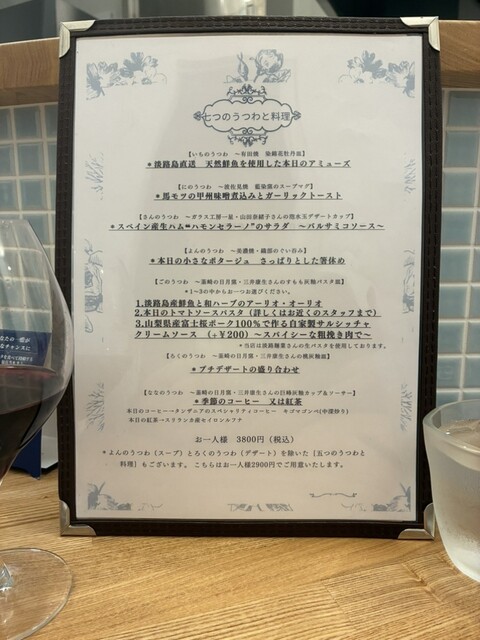 七つのうつわと料理
【いちのうつわ　～有田焼　染錦花牡丹皿】
＊淡路島直送　天然鮮魚を使用した本日のアミューズ
【にのうつわ　～波佐見焼　藍染窯のスープマグ】
＊馬モツの甲州味噌煮込みとガーリックトースト
【さんのうつわ　～ガラス工房一星・山田奈緒子さんの泡水玉デザートカップ】
＊スペイン産生ハム“ハモンセラーノ”のサラダ　～バルサミコソース～
【よんのうつわ　～美濃焼・織部のぐい呑み】
＊本日の小さなポタージュ　さっぱりとした箸休め
【ごのうつわ　～韮崎の日月窯・三井康生さんのすもも灰釉パスタ皿】
＊1～3の中からお一つお選びください。
1.淡路島産鮮魚と和ハーブのアーリオ・オーリオ
2.本日のトマトソースパスタ（詳しくはお近くのスタッフまで）
3.山梨県産富士桜ポーク100％で作る自家製サルシッチャ
クリームソース　（+￥200）～スパイシーな粗挽き肉で～
＊当店は淡路麺業さんの生パスタを使用しております。
【ろくのうつわ　～韮崎の日月窯・三井康生さんの桃灰釉皿】
＊プチデザートの盛り合わせ
【ななのうつわ　～韮崎の日月窯・三井康生さんの巨峰灰釉カップ＆ソーサー】
＊季節のコーヒー　又は紅茶
本日のコーヒー→タンザニアのスペシャリティコーヒー　＊ゴマゴンベ(中深炒り)
本日の紅茶→スリランカ産セイロンルフナ
お一人様　3800円（税込）
＊よんのうつわ（スープ）とろくのうつわ（デザート）を除いた［五つのうつわと
料理］もございます。こちらはお一人様2900円でご用意いたします。